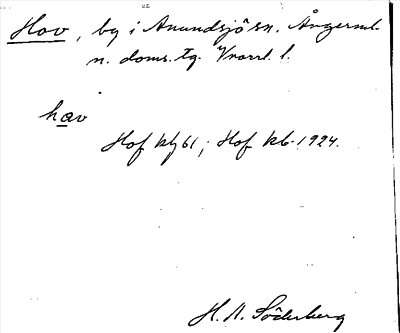 Hov, by i Anundsjö sn. Ångerml.
n. doms. tg. Vnorrl. l.
hav
Hof kbg 61; Hof kb. 1924.
H. N. Söderberg